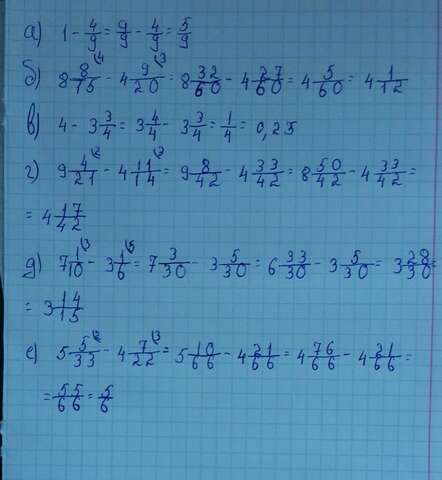 а) 1 - 4/9 = 9/9 - 4/9 = 5/9
б) 8 8/15 (4 - 4 9/20 (3 = 8 32/60 - 4 27/60 = 4 5/60 = 4 1/12
в) 4 - 3 3/4 = 3 4/4 - 3 3/4 = 1/4 = 0,25
г) 9 4/21 (2 - 4 11/14 (3 = 9 8/42 - 4 33/42 = 8 50/42 - 4 33/42 =
= 4 17/42
д) 7 1/10 (3 - 3 1/6 (5 = 7 3/30 - 3 5/30 = 6 33/30 - 3 5/30 = 3 28/30 =
= 3 14/15
е) 5 5/33 (2 - 4 7/22 (3 = 5 10/66 - 4 21/66 = 4 76/66 - 4 21/66 =
= 55/66 = 5/6